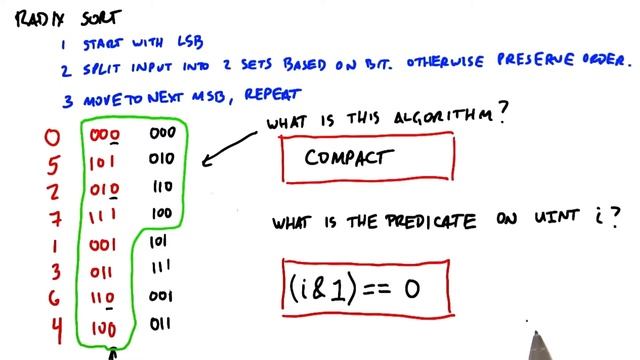 RADIX SORT
1 START WITH LSB
2 SPLIT INPUT INTO 2 SETS BASED ON BIT. OTHERWISE PRESERVE ORDER.
3 MOVE TO NEXT MSB, REPEAT
WHAT IS THIS ALGORITHM?
COMPACT
WHAT IS THE PREDICATE ON UINT i?
(i&1) == 0
0 000 000
5 101 010
2 010 110
7 111 100
1 001 101
3 011 111
6 110 001
4 100 011